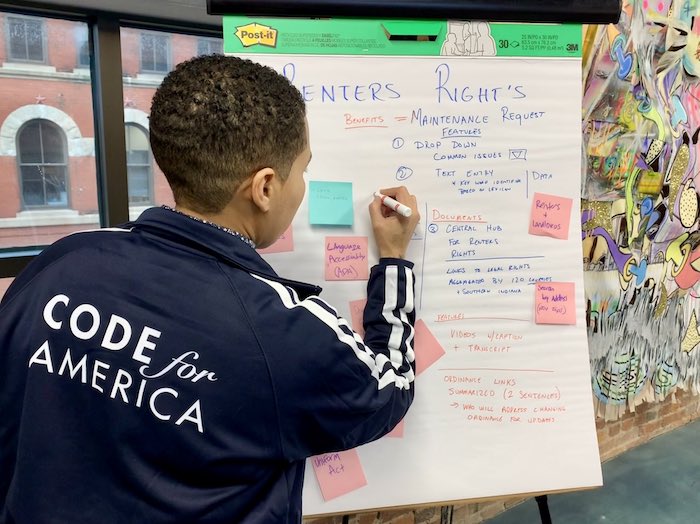 Post-it
30
3M
RENTERS RIGHT'S
BENEFITS = MAINTENANCE REQUEST
FEATURES
① DROP DOWN
COMMON ISSUES
② TEXT ENTRY
DATA
BASED ON
LANGUAGE
Accessibility
(ADA)
DOCUMENTS
② CENTRAL HUB
FOR RENTERS
RIGHTS
LINKS TO LEGAL RIGHTS
AGGREGATED BY 120 COUNTIES
+ SOUTHERN INDIANA
Renters
+
Landlords
Search
by Address
FEATURES
VIDEOS W/CAPTION
+ TRANSCRIPT
ORDINANCE LINKS
SUMMARIZED (2 SENTENCES)
→ WHO WILL ADDRESS CHANGING
ORDINANCE FOR UPDATES
Uniform
Act
CODE for
AMERICA